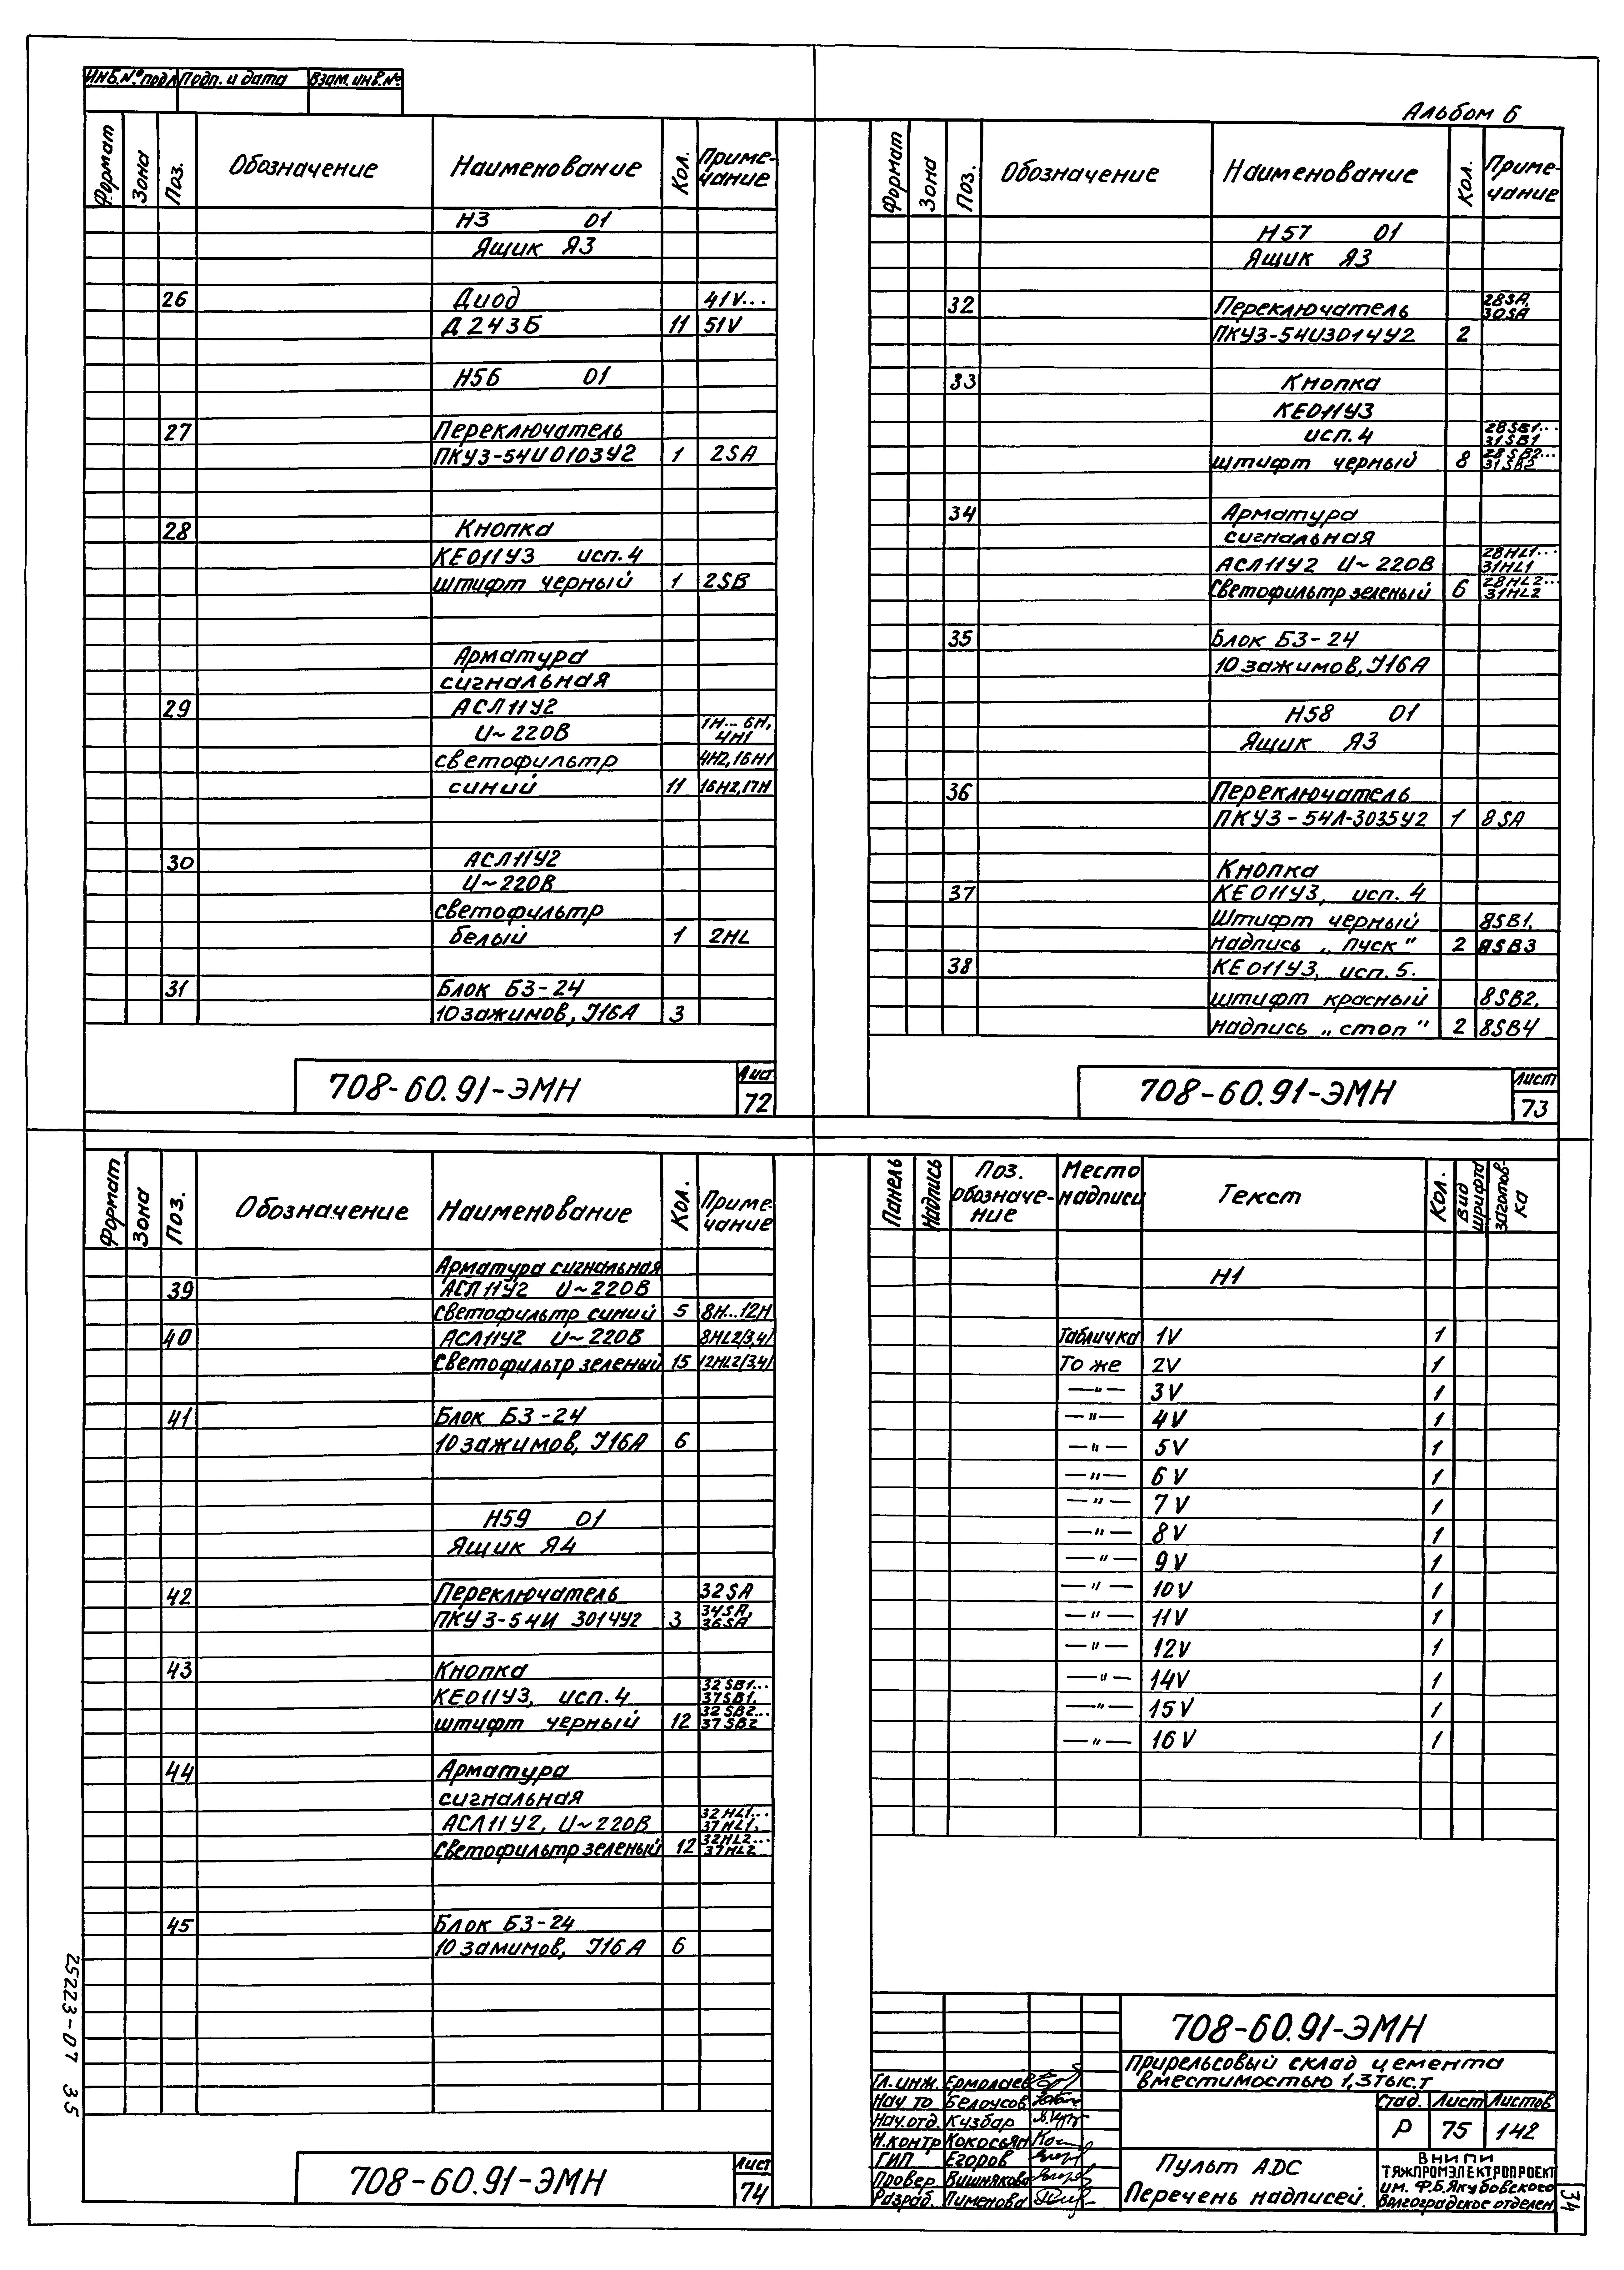 Инв.№ подл Подп. и дата Взам. инв.№
Альбом 6
Формат Зона Поз. Обозначение Наименование Кол. Приме-
чание
Н3 01
Ящик Я3
26 Диод 41V...
Д243Б 11 51V
Н56 01
27 Переключатель
ПКУ3-54И0103У2 1 2SA
28 Кнопка
КЕ011У3 исп.4
штифт черный 1 2SB
Арматура
сигнальная
29 АСЛ11У2
U~220В 1Н...6Н,
4Н1
светофильтр 4Н2,16Н1
синий 11 16Н2,17Н
30 АСЛ11У2
U~220В
светофильтр
белый 1 2HL
31 Блок Б3-24
10 зажимов, J16А 3
708-60.91-ЭМН
Лист
72
Формат Зона Поз. Обозначение Наименование Кол. Приме-
чание
Н57 01
Ящик Я3
32 Переключатель 28SA,
30SA
ПКУ3-54И3014У2 2
33 Кнопка
КЕ011У3
исп.4 28SB1...
31SB1
штифт черный 8 28SB2...
31SB2
34 Арматура
сигнальная
АСЛ11У2 U~220В 28HL1...
31HL1
Светофильтр зеленый 6 28HL2...
31HL2
35 Блок Б3-24
10 зажимов, J16А
Н58 01
Ящик Я3
36 Переключатель
ПКУ3-54Л-3035У2 1 8SA
Кнопка
37 КЕ011У3, исп. 4
Штифт черный 8SB1,
надпись „пуск“ 2 8SB3
38 КЕ011У3, исп.5.
штифт красный 8SB2,
надпись „стоп“ 2 8SB4
708-60.91-ЭМН
Лист
73
Формат Зона Поз. Обозначение Наименование Кол. Приме-
чание
Арматура сигнальная
39 АСЛ11У2 U~220В
Светофильтр синий 5 8Н...12Н
40 АСЛ11У2 U~220В 8HL2(3,4)
Светофильтр зеленый 15 12HL2(3,4)
41 Блок Б3-24
10 зажимов, J16А 6
Н59 01
Ящик Я4
42 Переключатель 32SA
ПКУ3-54И 3014У2 3 34SA,
36SA
43 Кнопка
КЕ011У3, исп.4 32SB1...
37SB1,
штифт черный 12 32SB2...
37SB2
44 Арматура
сигнальная
АСЛ11У2, U~220В 32HL1...
37HL1,
Светофильтр зеленый 12 32HL2...
37HL2
45 Блок Б3-24
10 замимов, J16А 6
708-60.91-ЭМН
Лист
74
25223-07 35
Панель Надпись Поз.
обозначе-
ние Место
надписи Текст Кол. Вид
шрифта заготов-
ка
Н1
Табличка 1V 1
То же 2V 1
—"— 3V 1
—"— 4V 1
—"— 5V 1
—"— 6V 1
—"— 7V 1
—"— 8V 1
—"— 9V 1
—"— 10V 1
—"— 11V 1
—"— 12V 1
—"— 14V 1
—"— 15V 1
—"— 16V 1
708-60.91-ЭМН
Прирельсовый склад цемента
вместимостью 1,3 тыс.т
Гл.инж. Ермолаев
Нач ТО Белоусов
Нач.отд. Кузбар
Н.контр Кокосьян
ГИП Егоров
Провер. Вишнякова
Разраб. Пименова
Стад. Лист Листов
Р 75 142
Пульт АDС
Перечень надписей.
ВНИПИ
ТЯЖПРОМЭЛЕКТРОПРОЕКТ
им. Ф.Б.Якубовского
Волгоградское отделен
34